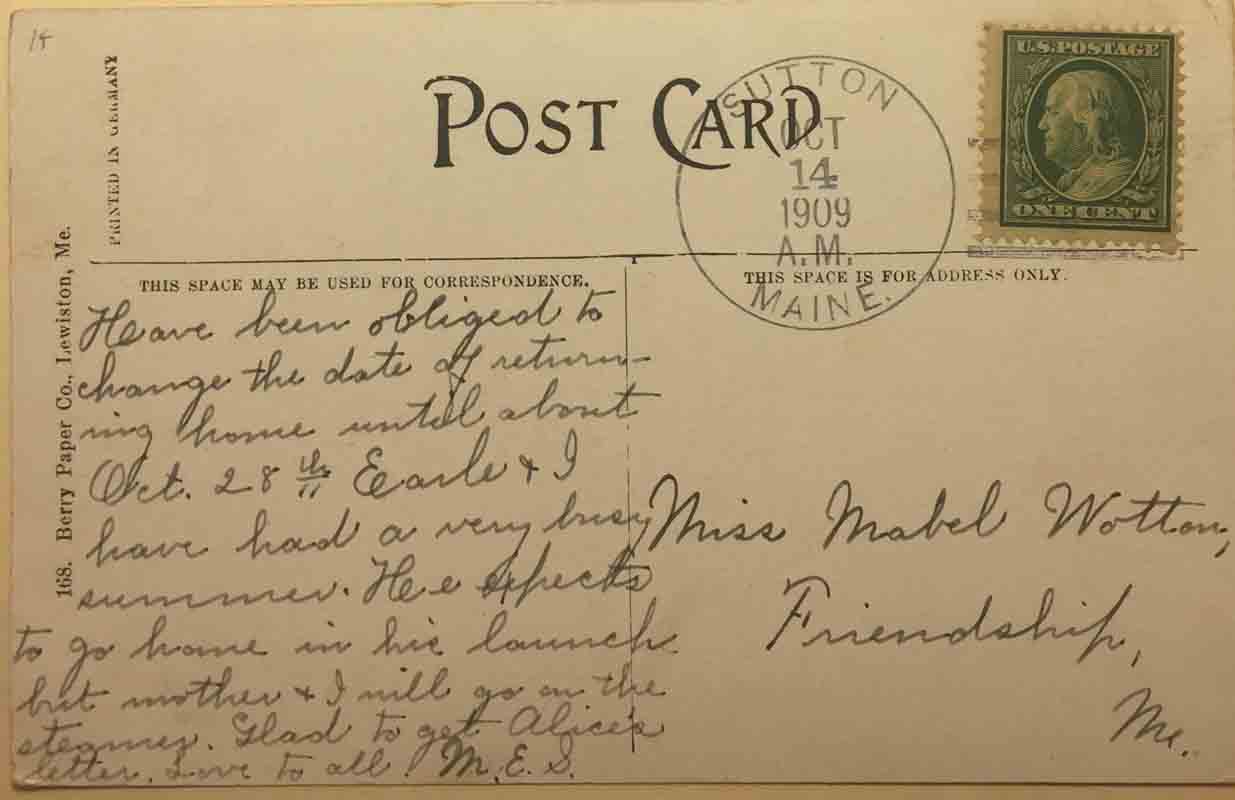 14
PRINTED IN GERMANY
168. Berry Paper Co., Lewiston, Me.
POST CARD
SUTTON
OCT
14
1909
A.M.
MAINE.
U.S. POSTAGE
ONE CENT
THIS SPACE MAY BE USED FOR CORRESPONDENCE.
THIS SPACE IS FOR ADDRESS ONLY.
Have been obliged to
change the date of return-
ing home until about
Oct. 28th Earle & I
have had a very busy
summer. He expects
to go home in his launch
but mother & I will go on the
steamer. Glad to get Alice's
letter. Love to all. M.E.S.
Miss Mabel Wotton,
Friendship,
Me.